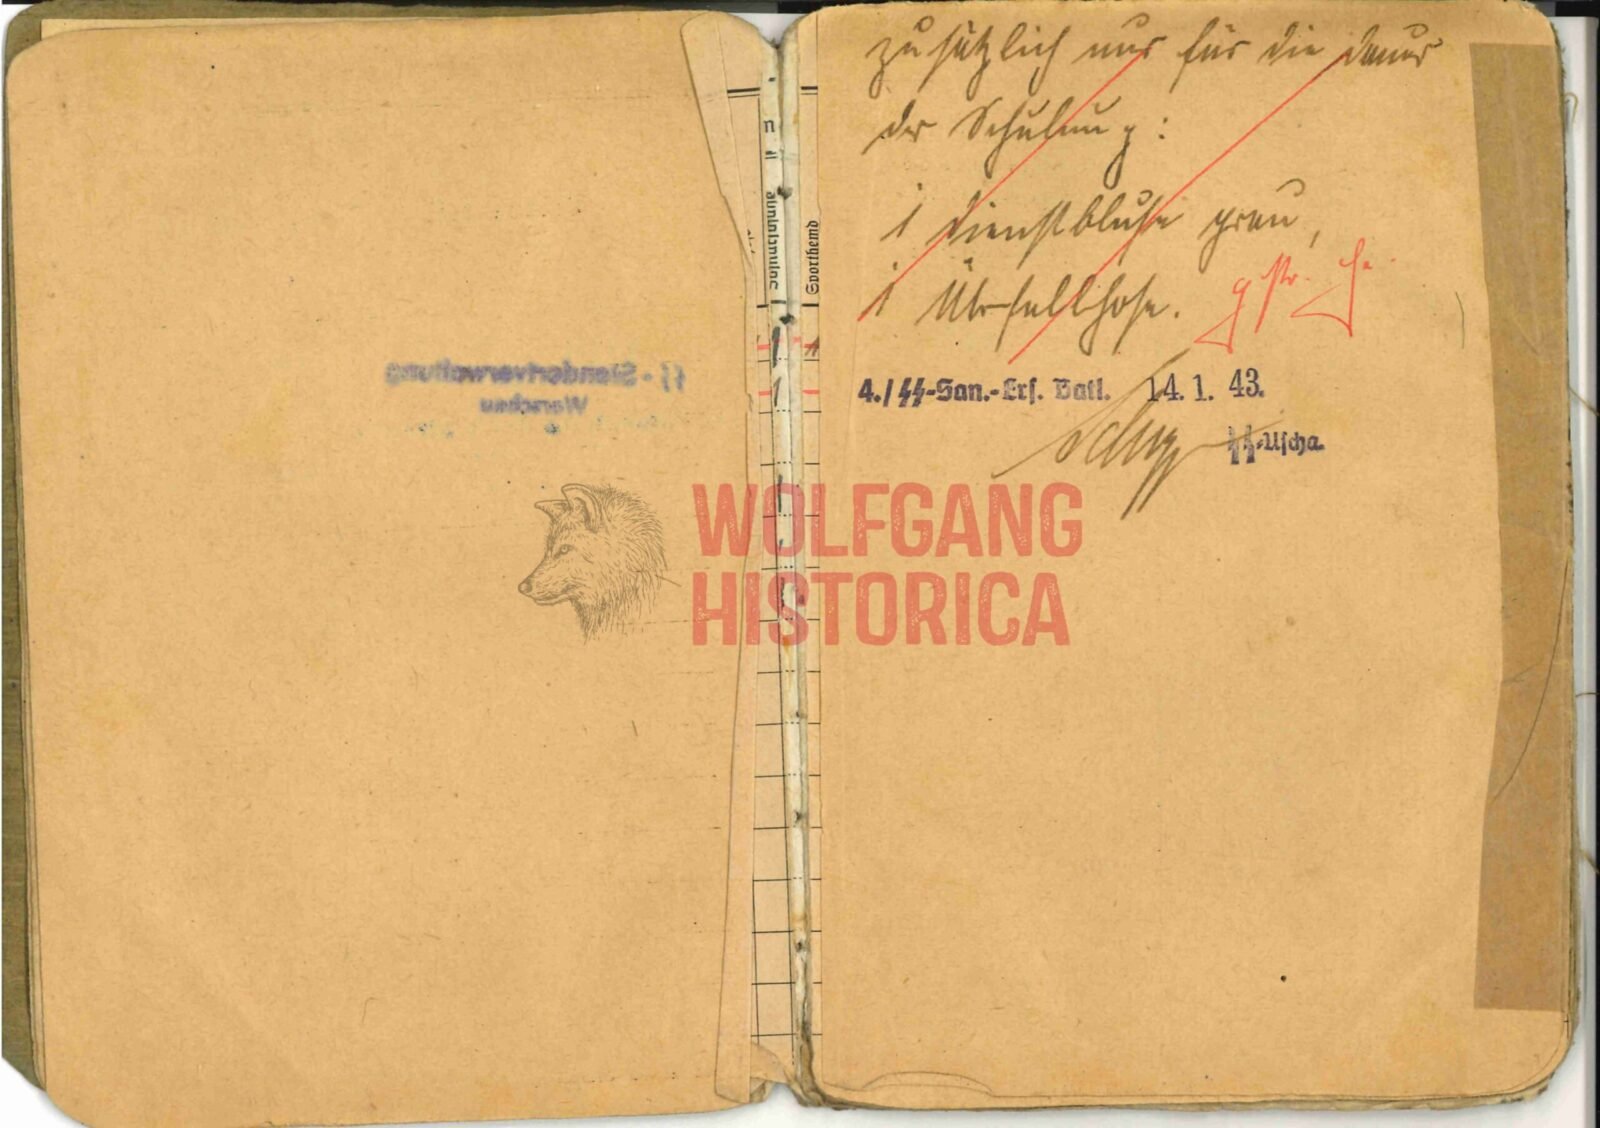 SS-Standortverwaltung
Warschau
Sporthemd
zusätzlich nur für die Dauer
der Schulung:
1 Dienstbluse grau,
1 Überfallhose.
gestr.
4./SS-San.-Ers. Batl. 14. 1. 43.
SS-Uscha.
WOLFGANG
HISTORICA